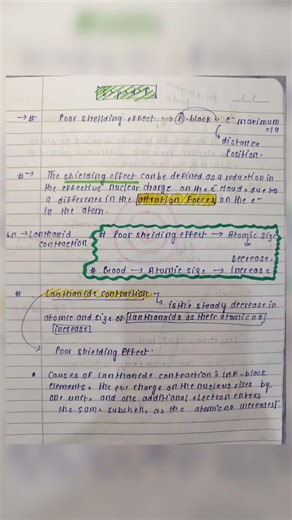 →# Poor shelding effect → f-block → e⁻ maximum = 14
distance
Position.
#→ The shielding effect can be defined as a reduction in
the effective nuclear charge on the e⁻ cloud, due to
a difference in the attration Forces on the e⁻
in the atom.
Lanthanid contraction → # Poor shelding effect → Atomic size
Decrease.
# Blood → Atomic size → Increase
# Lanthanide contraction
↳ is the steady decrease in
atomic and size of lanthanoids as their atomic no
increase
Poor shielding Effect.
• Causes of lanthanide contraction :- In F-block
elements, the +ve charge on the nucleus rises by
one unit, and one additional electron enters
the same subshell, as the atomic no increases.